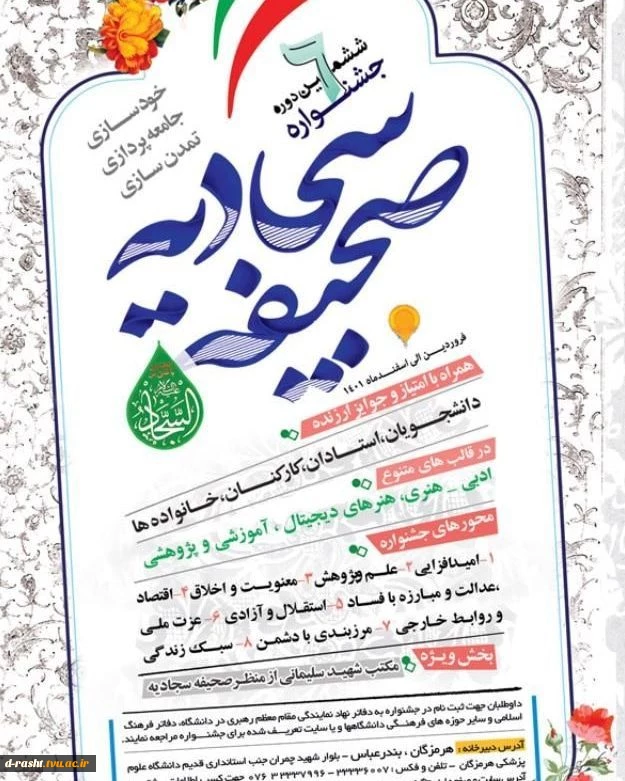 ششمین دوره
جشنواره
خودسازی
جامعه پردازی
تمدن سازی
صحیفه سجادیه
السجاد
فروردین الی اسفندماه ۱۴۰۱
همراه با امتیاز و جوایز ارزنده
دانشجویان، استادان، کارکنان، خانواده ها
در قالب های متنوع
ادبی - هنری، هنرهای دیجیتال، آموزشی و پژوهشی
محورهای جشنواره
۱- امیدافزایی ۲- علم وپژوهش ۳- معنویت و اخلاق ۴- اقتصاد
،عدالت و مبارزه با فساد ۵- استقلال و آزادی ۶- عزت ملی
و روابط خارجی ۷- مرزبندی با دشمن ۸- سبک زندگی
بخش ویژه مکتب شهید سلیمانی از منظر صحیفه سجادیه
داوطلبان جهت ثبت نام در جشنواره به دفاتر نهاد نمایندگی مقام معظم رهبری در دانشگاه، دفاتر فرهنگ
اسلامی و سایر حوزه های فرهنگی دانشگاهها و یا سایت تعریف شده برای جشنواره مراجعه نمایند.
آدرس دبیرخانه : هرمزگان ، بندرعباس - بلوار شهید چمران جنب استانداری قدیم دانشگاه علوم
پزشکی هرمزگان - تلفن و فکس : ۳۳۳۳۶۰۰۷ - ۳۳۳۳۷۹۹۶ ۰۷۶ جهت کسب اطلاعات
d-rasht.tvu.ac.ir